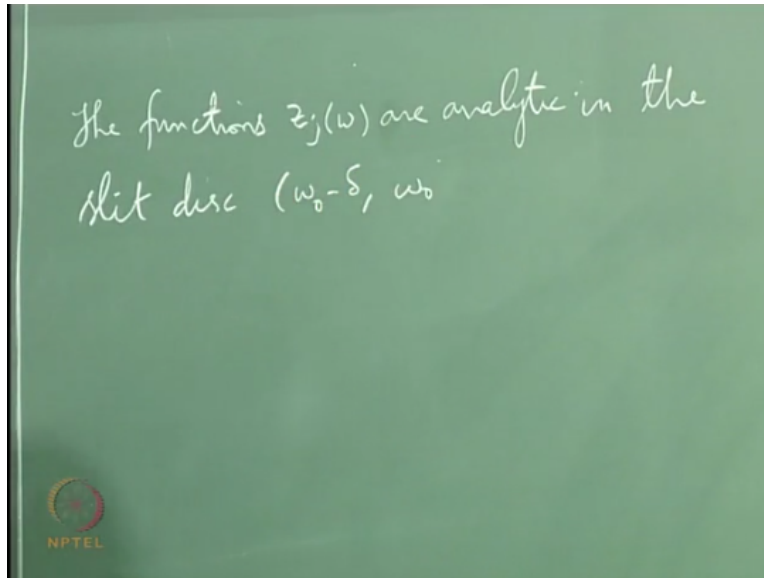 The functions z_j(w) are analytic in the
slit disc (w_0-δ, w_0
NPTEL